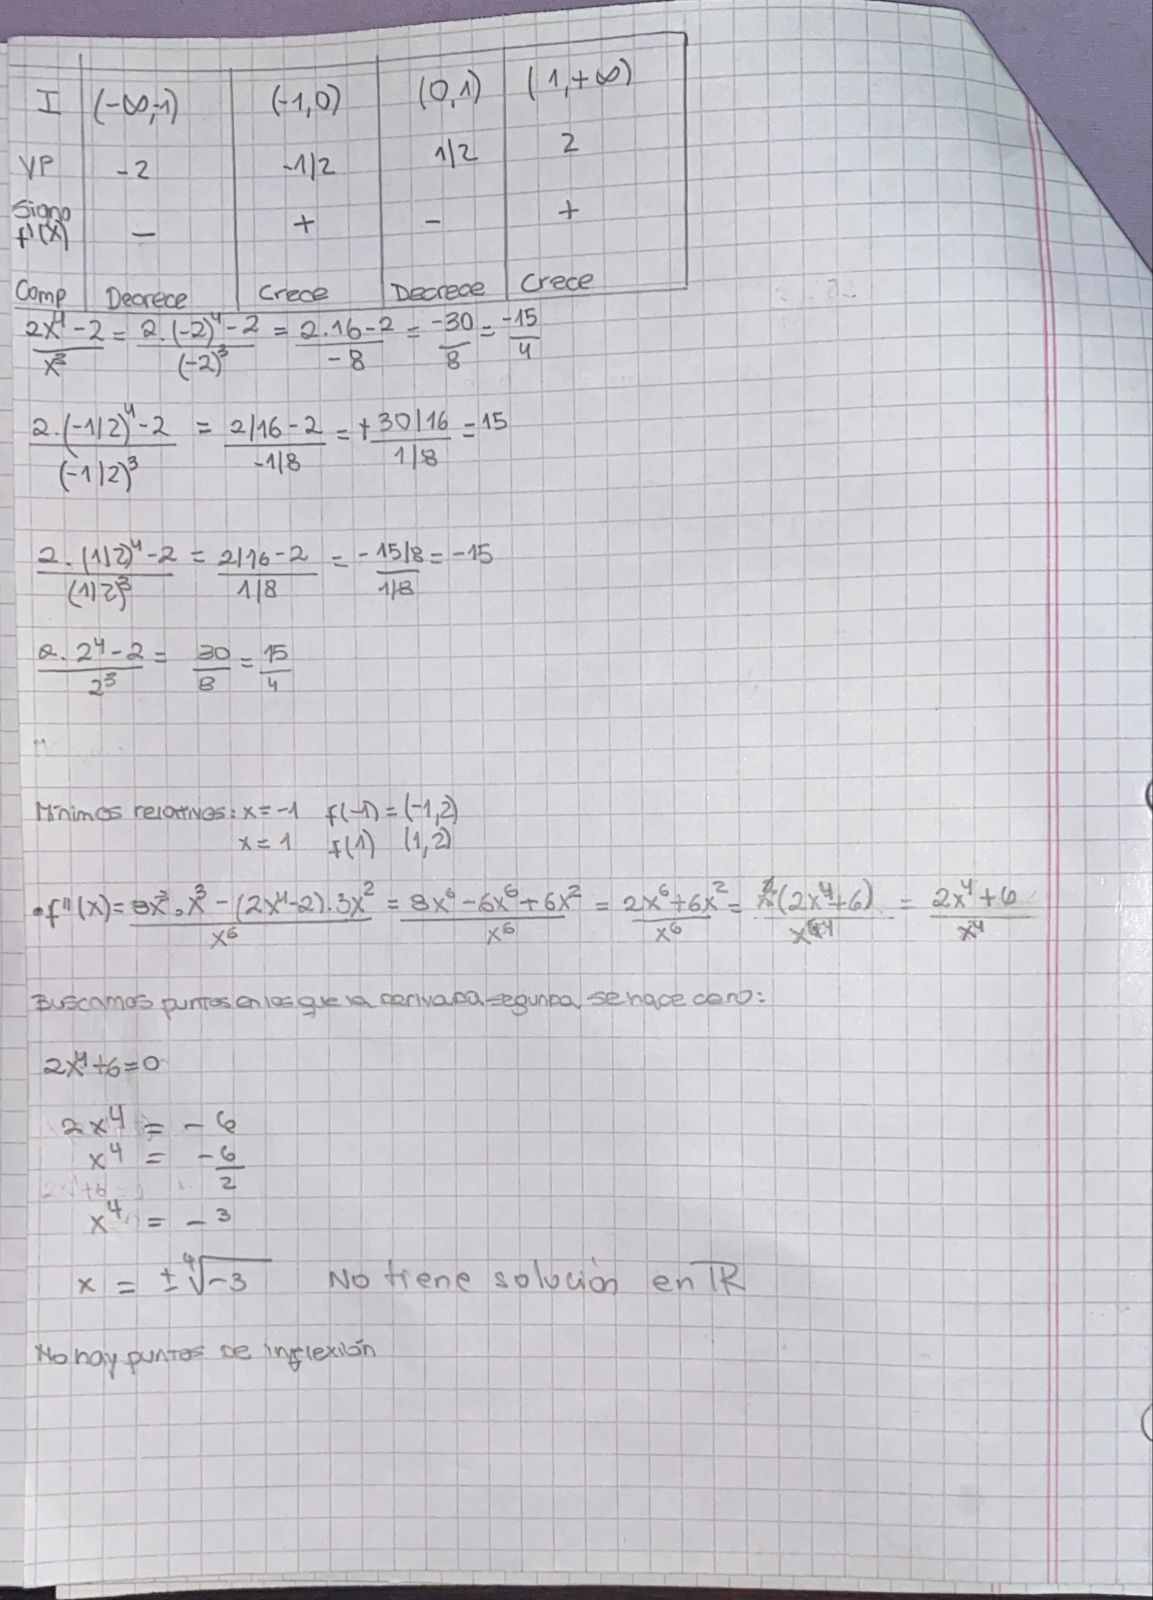 I (-∞,-1) (-1,0) (0,1) (1,+∞)
VP -2 -1/2 1/2 2
Signo f'(x) - + - +
Comp Decrece Crece Decrece Crece
(2x⁴-2)/x³ = (2·(-2)⁴-2)/(-2)³ = (2·16-2)/-8 = -30/8 = -15/4
(2·(-1/2)⁴-2)/(-1/2)³ = (2/16-2)/(-1/8) = (+30/16)/(1/8) = 15
(2·(1/2)⁴-2)/(1/2)³ = (2/16-2)/(1/8) = (-15/8)/(1/8) = -15
(2·2⁴-2)/2³ = 30/8 = 15/4
Mínimos relativos: x=-1 f(-1)=(-1,2)
x=1 f(1) (1,2)
•f''(x)= (8x³·x³-(2x⁴-2)·3x²)/x⁶ = (8x⁶-6x⁶+6x²)/x⁶ = (2x⁶+6x²)/x⁶ = x²(2x⁴+6)/x⁶⁴ = (2x⁴+6)/x⁴
Buscamos puntos en los que la derivada segunda se hace cero:
2x⁴+6=0
2x⁴ = -6
x⁴ = -6/2
x⁴ = -3
x = ±⁴√-3 No tiene solución en ℝ
No hay puntos de inflexión